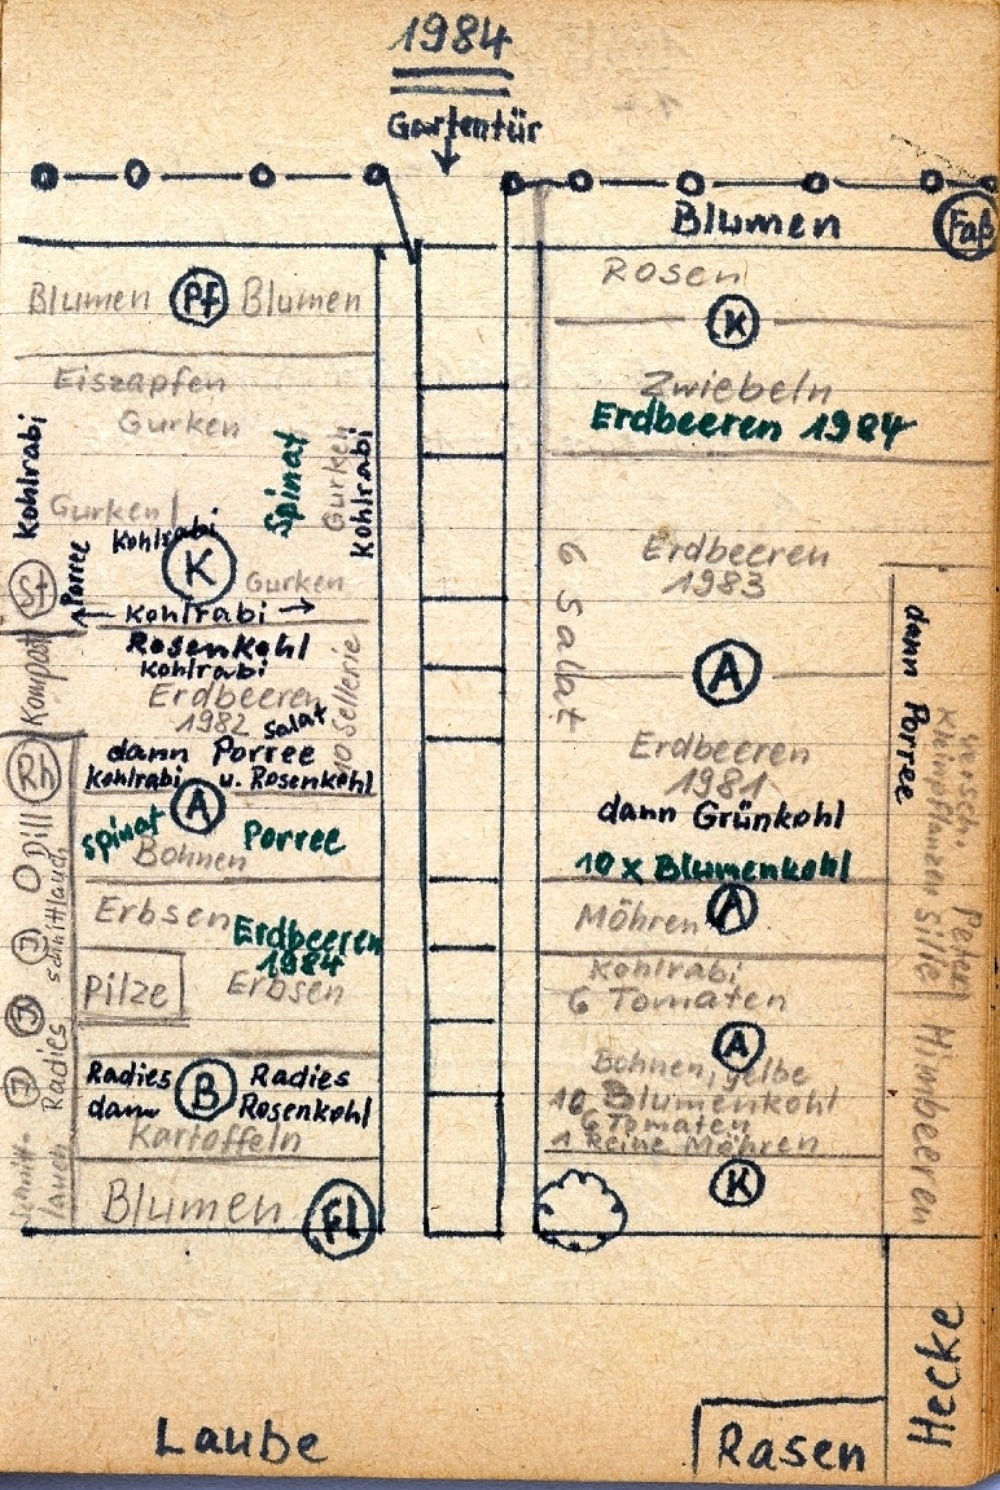 1984
Gartentür
Blumen
Faß
Blumen Pf Blumen
Eiszapfen
Gurken
Kohlrabi
Spinat
Gurken
Kohlrabi
Gurken
Kohlrabi
K
Gurken
St
Porree
Kohlrabi
Kompost
Rosenkohl
Kohlrabi
Erdbeeren
1982
Salat
10 Sellerie
dann Porree
Kohlrabi u. Rosenkohl
A
Rh
Dill
Schnittlauch
Spinat
Porree
Bohnen
Erbsen
Erdbeeren
1984
Pilze
Erbsen
J
J
J
Radies
Radies B Radies
dann Rosenkohl
Kartoffeln
Blumen
Fl
Rosen
K
Zwiebeln
Erdbeeren 1984
6 Salat
Erdbeeren
1983
A
Erdbeeren
1981
dann Grünkohl
10 x Blumenkohl
Möhren A
Kohlrabi
6 Tomaten
A
Bohnen, gelbe
10 Blumenkohl
6 Tomaten
1 Reihe Möhren
K
dann Porree
versch.
Kleinpflanzen
Silie
Peter
Himbeeren
Hecke
Laube
Rasen